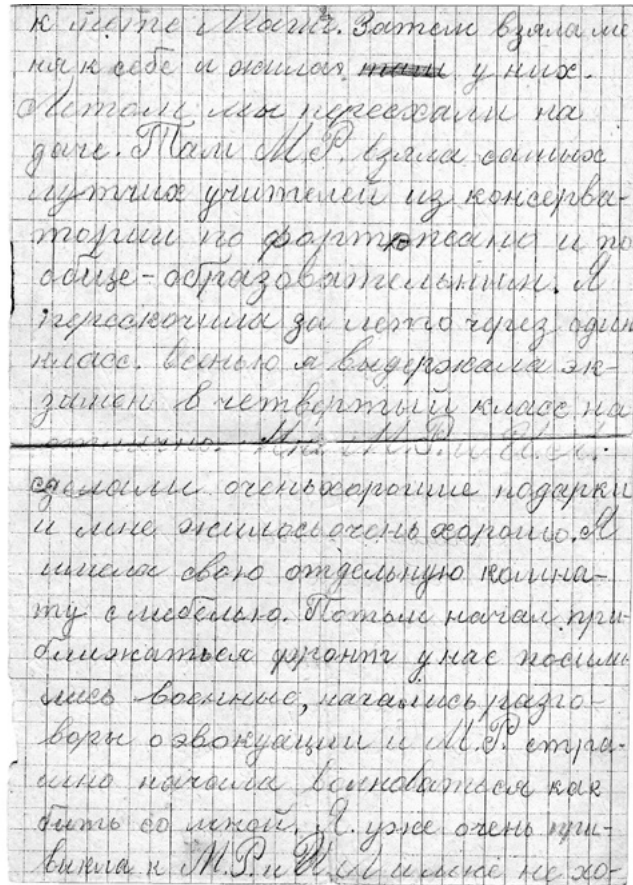 к тете Маги. Затем взяла ме
ня к себе и жила у них.
Летом мы переехали на
даче. Там М.Р. взяла самых
лутчих учителей из консерва-
тории по фортопеано и по
обще-образовательным. Я
перескочила за лето через один
класс. Весною я выдержала эк-
замен в четвертый класс на
отлично. Мне М.Р. и
сделали очень хорошие подарки
и мне жилось очень хорошо. Я
имела свою отдельную комна-
ту с мебелью. Потом начал при-
ближаться фронт у нас
лись военные, начались разго-
воры о эвокуации и М.Р. стра-
шно начала волноваться как
быть со мной. Я уже очень при-
выкла к М.Р. и И.М и мне не хо-